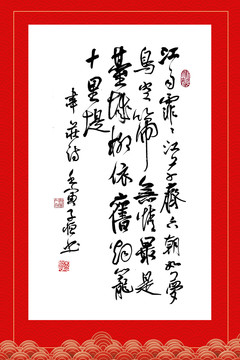 江雨霏霏江草齊六朝如夢
鳥空啼無情最是
臺城柳依舊烟籠
十里堤
韋莊诗